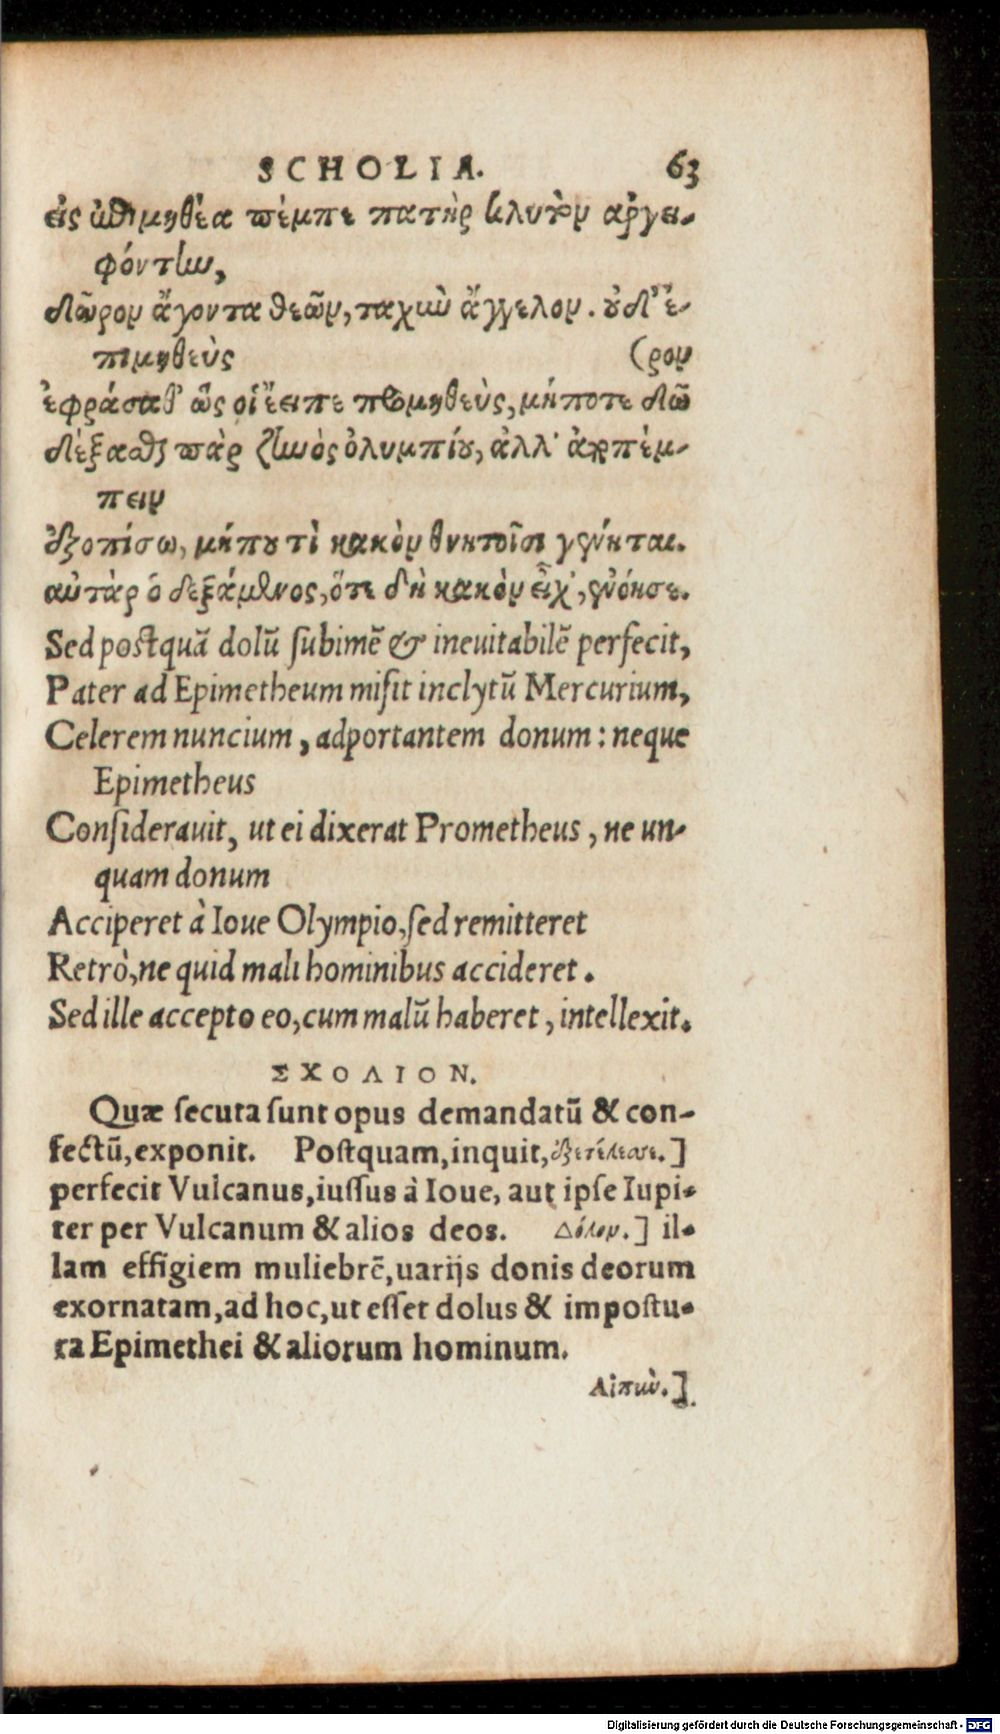 SCHOLIA. 63
εἰς ἐπιμηθέα πέμπε πατὴρ κλυτὸν ἀργει-
φόντlω,
δῶρον ἄγοντα θεῶν, ταχὺν ἄγγελον. οὐδ᾽ ἐ-
πιμηθεὺς (ρον
ἐφράσαθ᾽ ὥς οἱ ἔειπε προμηθεὺς, μήποτε δῶ
δέξασθαι πὰρ ζlωὸς ὀλυμπίου, ἀλλ᾽ ἀποπέμ-
πειν
ἐξοπίσω, μήπου τὶ κακὸν θνητοῖσι γένηται.
αὐτὰρ ὁ δεξάμενος, ὅτι δὴ κακὸν εἶχ᾽, ἐνόησε.
Sed postquā dolū subimē & ineuitabilē perfecit,
Pater ad Epimetheum misit inclytū Mercurium,
Celerem nuncium, adportantem donum: neque
Epimetheus
Considerauit, ut ei dixerat Prometheus, ne un-
quam donum
Acciperet à Ioue Olympio, sed remitteret
Retrò, ne quid mali hominibus accideret.
Sed ille accepto eo, cum malū haberet, intellexit.
ΣΧΟΛΙΟΝ.
Quæ secuta sunt opus demandatū & con-
fectū, exponit. Postquam, inquit, ἐξετέλεσσε.]
perfecit Vulcanus, iussus à Ioue, aut ipse Iupi-
ter per Vulcanum & alios deos. Δόλον.] il-
lam effigiem muliebrē, uarijs donis deorum
exornatam, ad hoc, ut esset dolus & impostu-
ra Epimethei & aliorum hominum.
Αἰπὺν.]
Digitalisierung gefördert durch die Deutsche Forschungsgemeinschaft - DFG